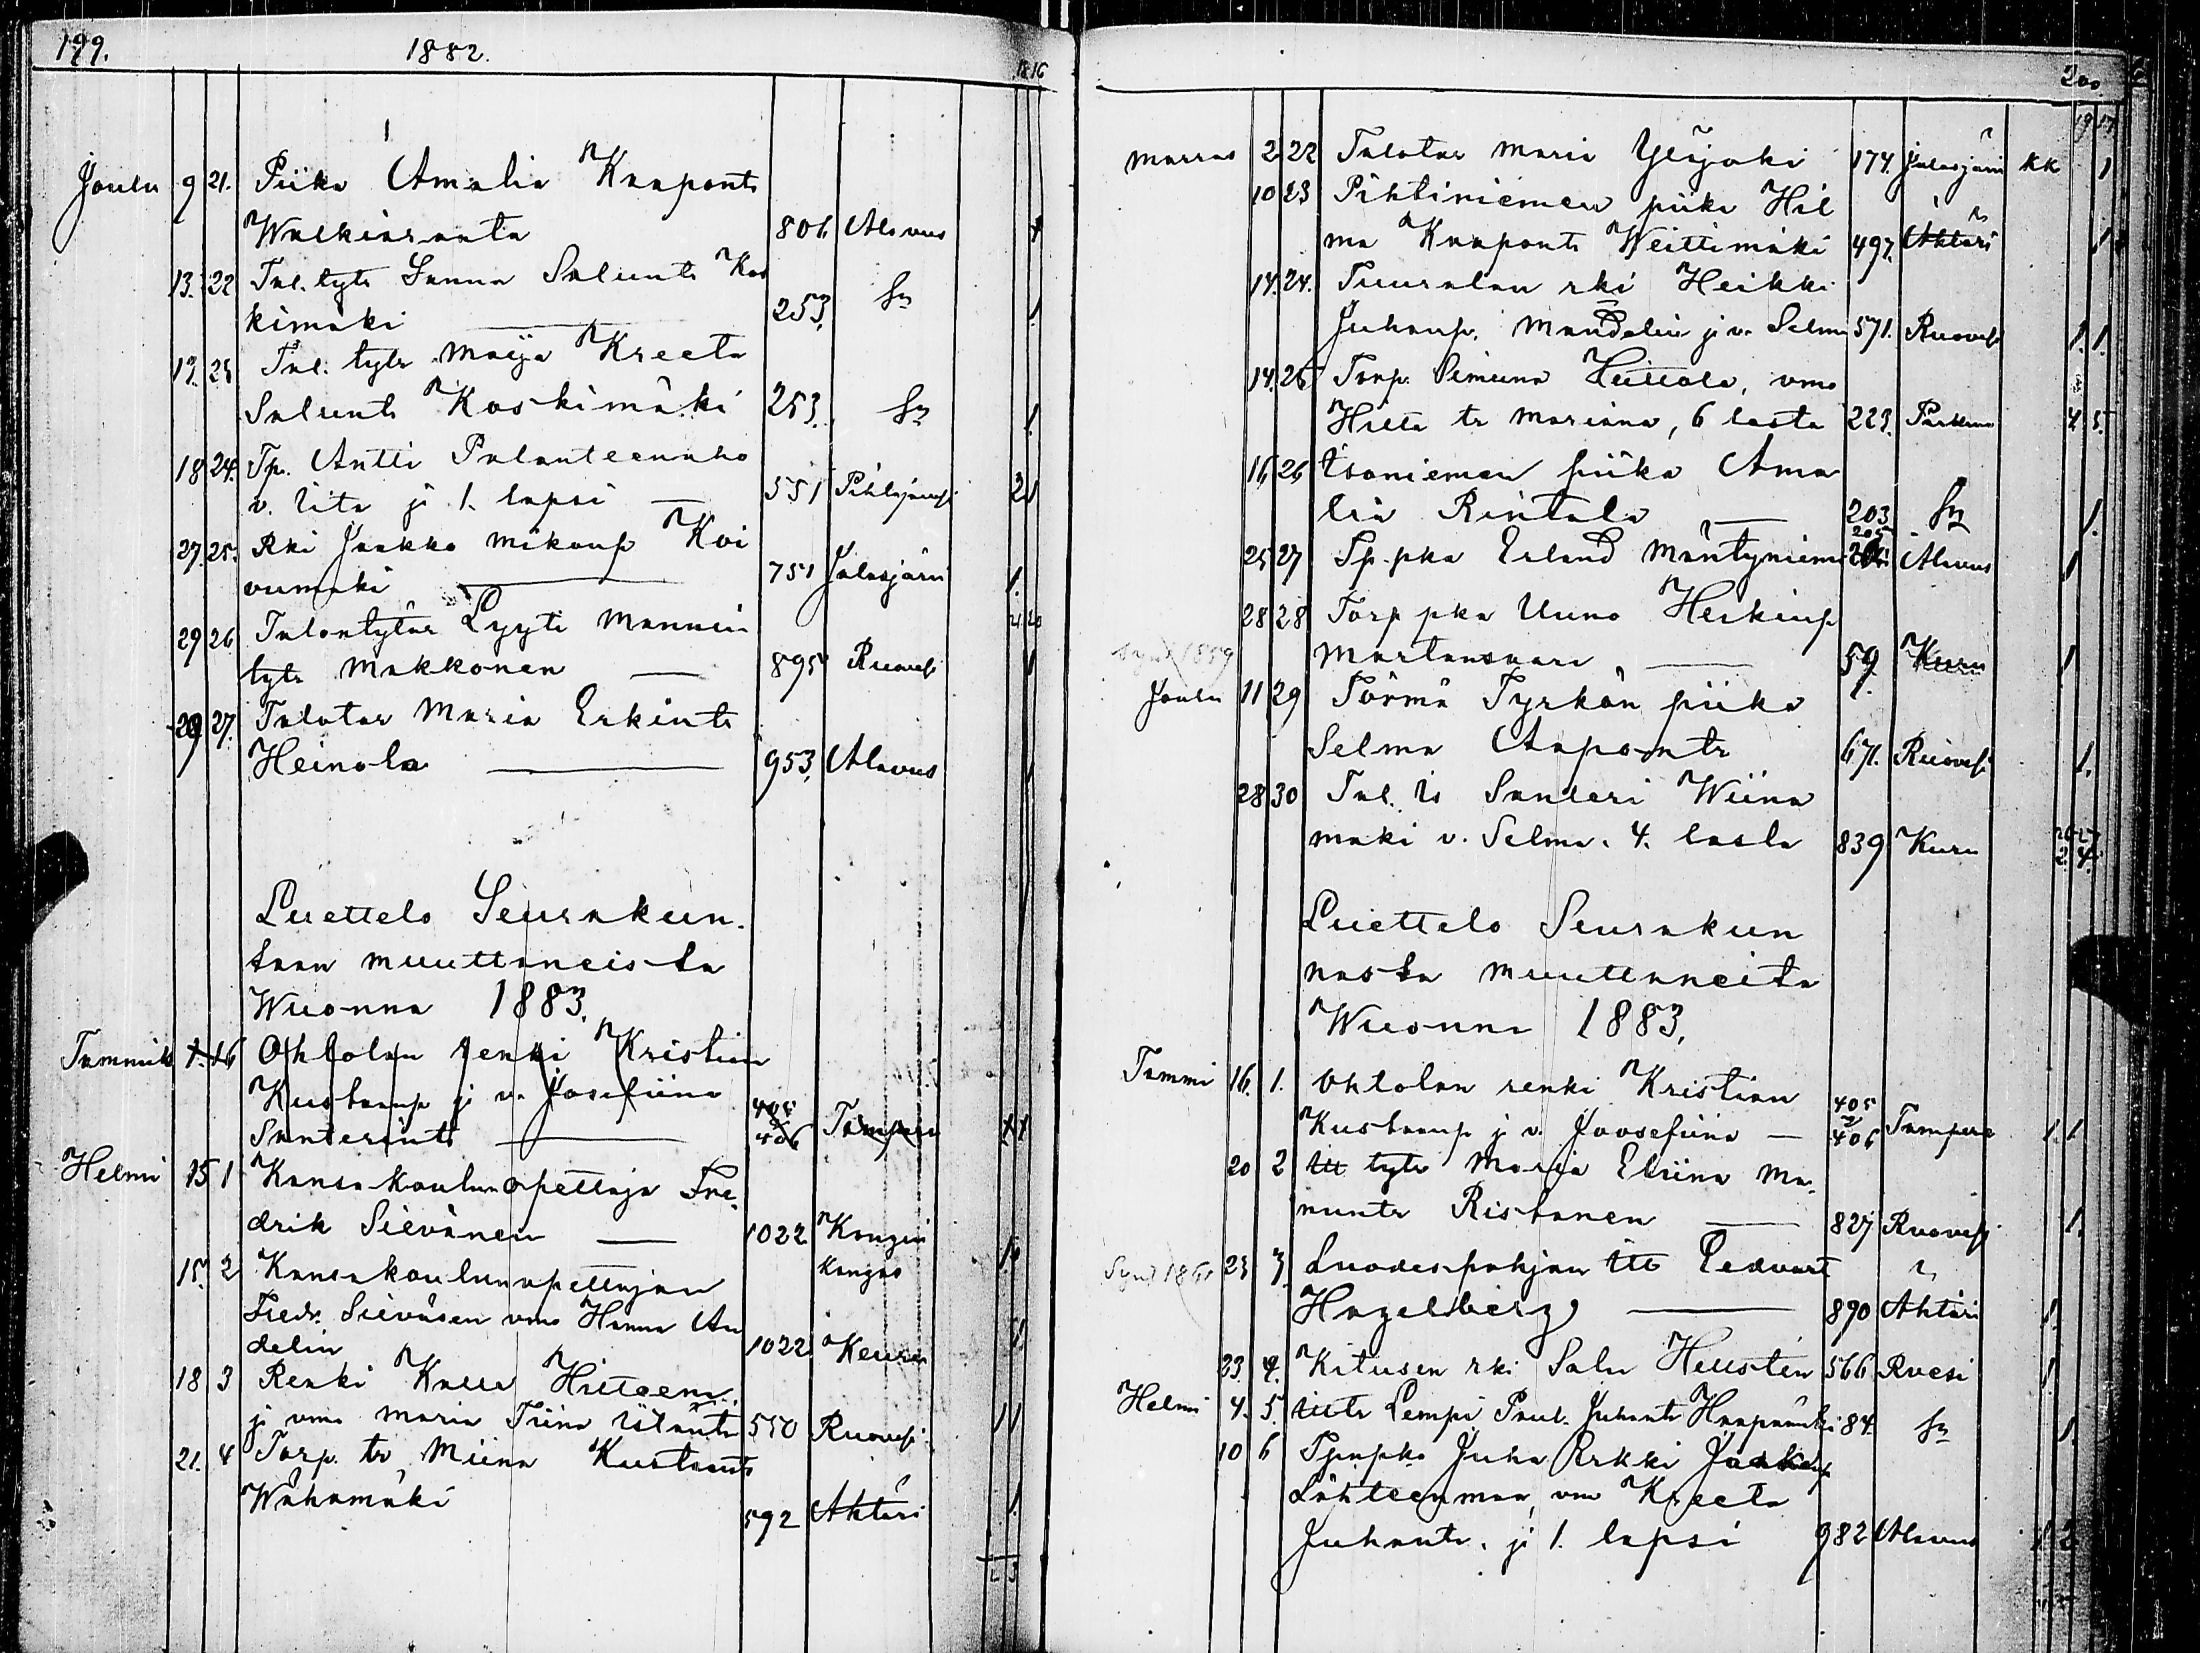 199. 1882.
18 16
Joulu 9 21. Piika Amalia Kaaponts
Walkiaranta 806 Alavus 1
13. 22 Tal. tytr Sanna Salunts Kos
kimäki 253. Sn 1.
17. 23 Tal. tytr Maija Kreeta
Salunts Koskimäki 253. Sn 1.
18 24. Tp. Antti
v. Iita ja 1. lapsi 551 2 1
27. 25. Rki Jaakko Mikonp Koi
vumäki 751 Jalasjärvi 1.
21 20
29 26 Talontytär Lyyti Mannin
tytr Makkonen 895 Ruovesi 1
29 27. Talotar Maria Erkints
Heinola 953. Alavus 1
Luettelo Seurakun-
taan muuttaneista
Wuonna 1883.
Tammik 1. 16 Ohtolan renki Kristian
Kustaanp ja v. Josefiina
Santerints 405 & 406 Tampere 1 1
Helmi 15 1 Kansakoulunopettaja Fre-
drik Sievänen 1022 Kangas
15. 2 Kansakoulunopettajan kangas
Fredr. Sieväsen vmo Hanna An
delin 1022 Keuru
18 3 Renki Kalle
ja vmo Maria Tiina 550 Ruovesi 1 1
21. 4 Torp. tr Miina Kustaants
Wähämäki 592 Ahtäri 1.
200.
19 17
Marras 2 22 Talotar Maria Ylijoki 174. Jalasjärvi kk 1
10 23 Pihtiniemen piika Hil
ma Kaaponts Weittimäki 497. Ahtäri 1
14. 24. Tuuralan rki Heikki
Juhanp. Mandelin ja v. Selma 571. Ruovesi 1. 1.
14. 25 Torp. Simuna Heittola, vmo
tr Mariana, 6 lasta 223. Parkano 4 5.
16 26 piika Ama
lia Rintala 203 Sn 1.
205
25 27 Tp. pka Erland Mäntyniemi Alavus 1
28 28 Torp pka Uuno Heikinp
Synt. 1859 Martansaari 59. Kuru 1
Joulu 11 29 Törmä Tyrkön piika
Selma Aaponts 671. Ruovesi 1.
28 30 Tal. Is Santeri Wiina
mäki v. Selma. 4. lasta 839 Kuru 2. 4.
Luettelo Seurakun
nasta muuttaneita
Wuonna 1883.
Tammi 16. 1. Ohtolan renki Kristian
Kustaanp ja v. Joosefiina — 405 & 406 Tampere 1. 1.
20 2 Itt tytr Maria Eliina Ma-
nunts Ristanen 827 Ruovesi 1.
Synt 186 23 3. Luodespohjan Itt Eedvart
Hagelberg 890 Ahtäri 1.
23. 4. Kitusen rki Salu Heusten 566 1.
Helmi 4. 5. Lempi Paul. Juhants 84. Sn 1.
10 6 Juha Erkki
Lähteenmaa, vmo Kreeta
Juhants. ja 1. lapsi 982 Alavus 1. 2